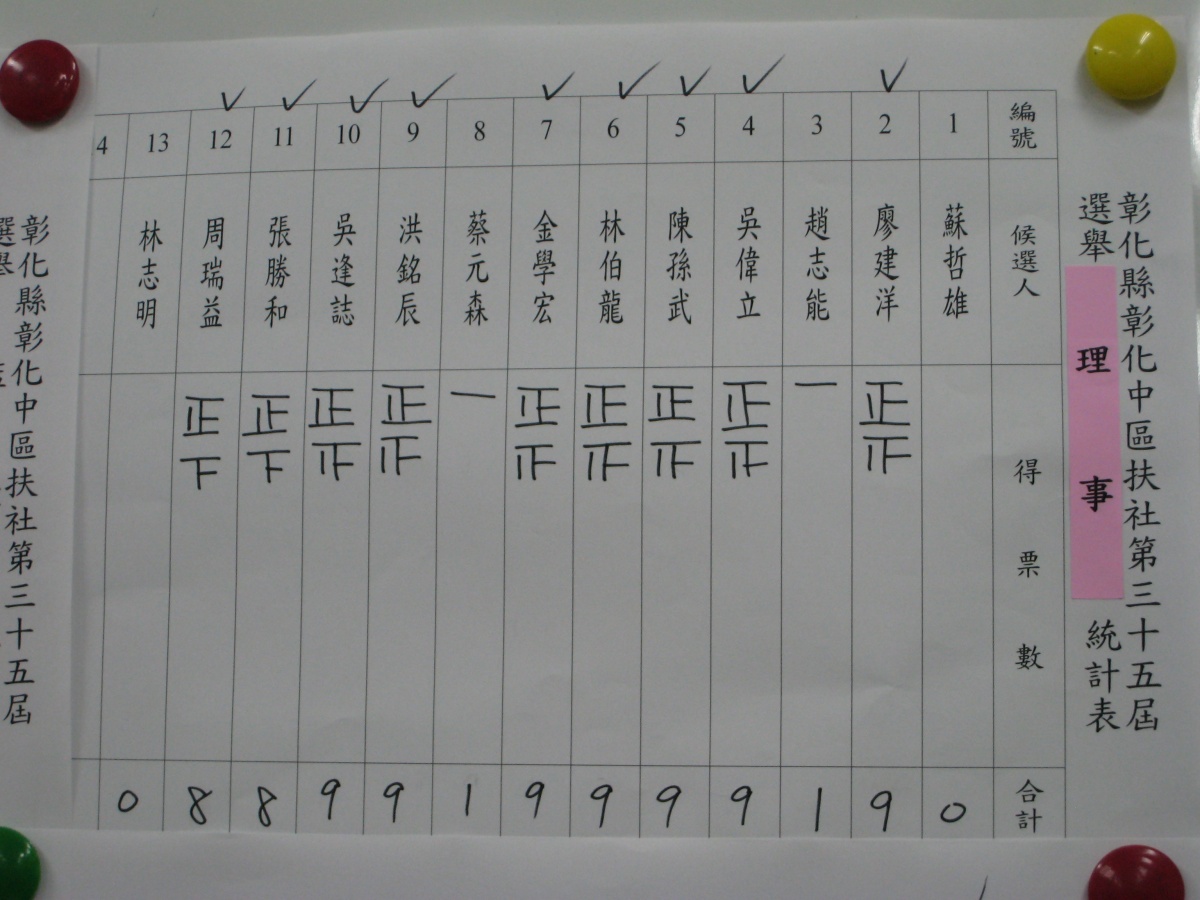 彰化縣彰化中區扶社第三十五屆
選舉 理事 統計表
編號 1 2 3 4 5 6 7 8 9 10 11 12 13 4
候選人
蘇哲雄
廖建洋
趙志能
吳偉立
陳孫武
林伯龍
金學宏
蔡元森
洪銘辰
吳逢誌
張勝和
周瑞益
林志明
得票數
正正
一
正正
正正
正正
正正
一
正正
正正
正下
正下
合計 0 9 1 9 9 9 9 1 9 9 8 8 0
彰化縣彰化中區扶社第三十五屆
選舉